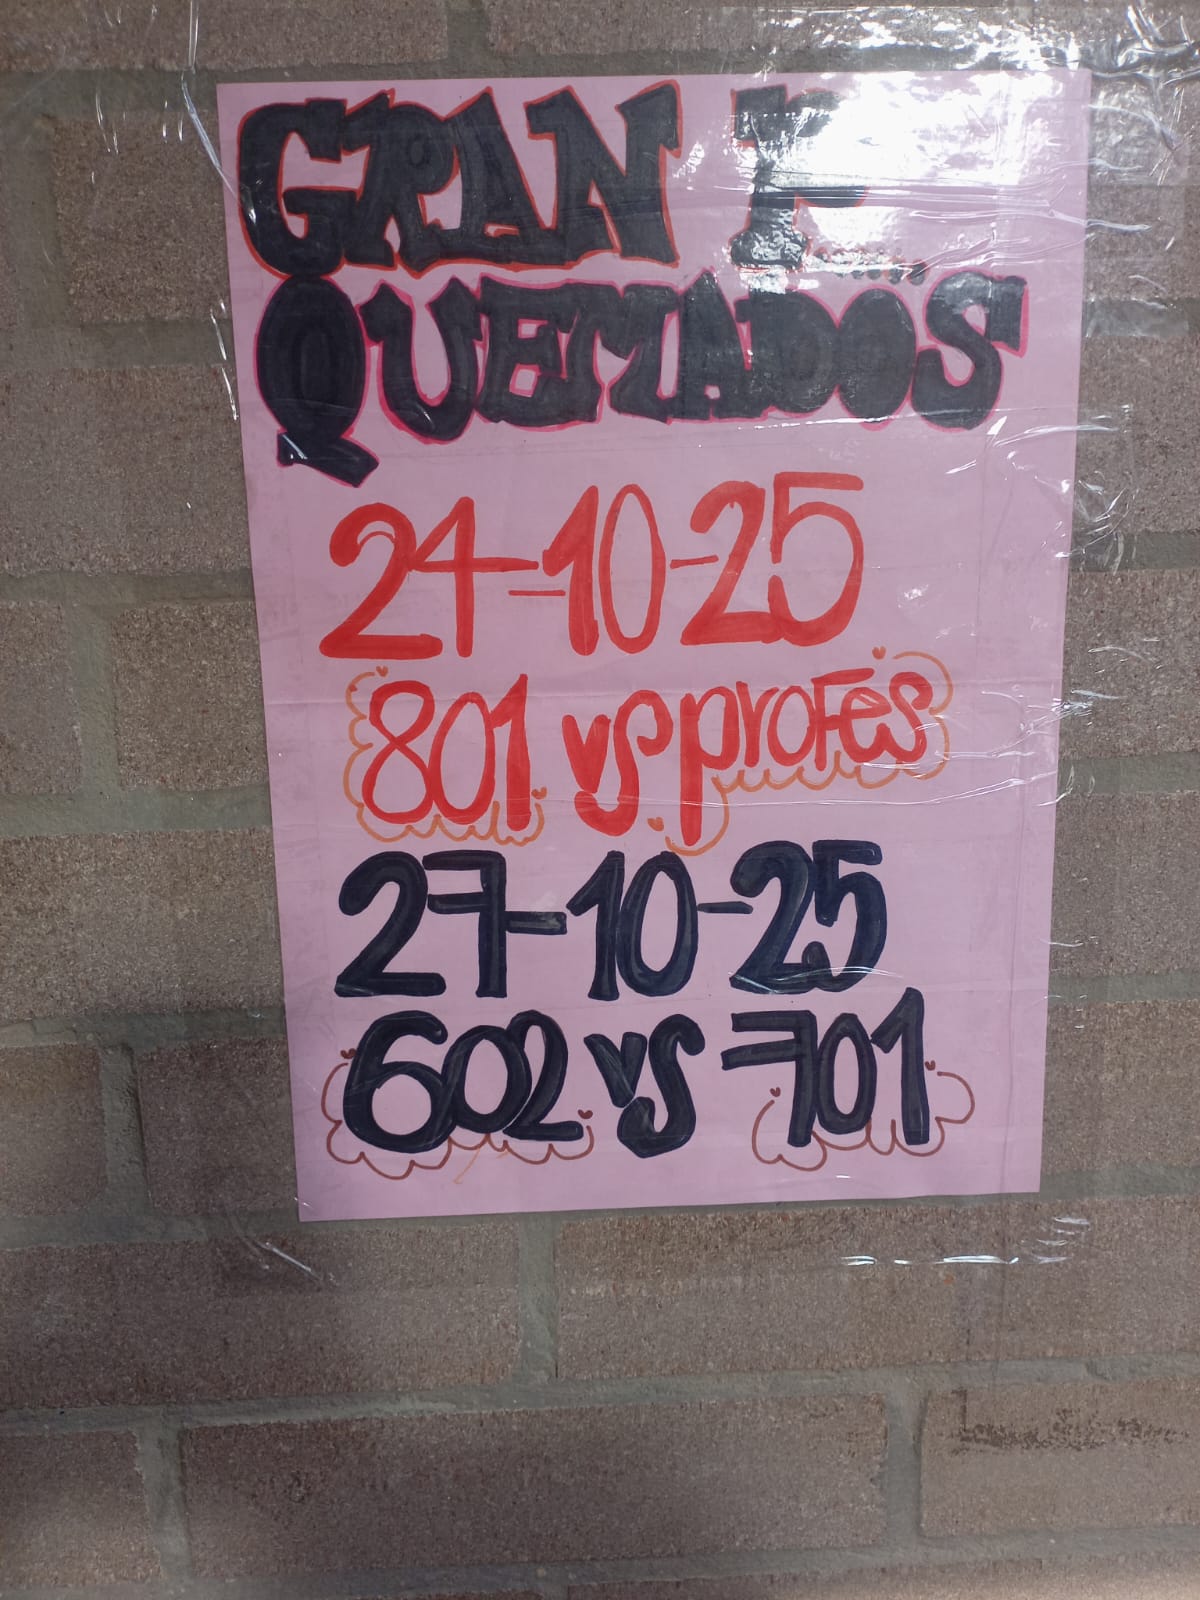 GRAN
QUEMADOS
24-10-25
801 vs profes
27-10-25
602 vs 701